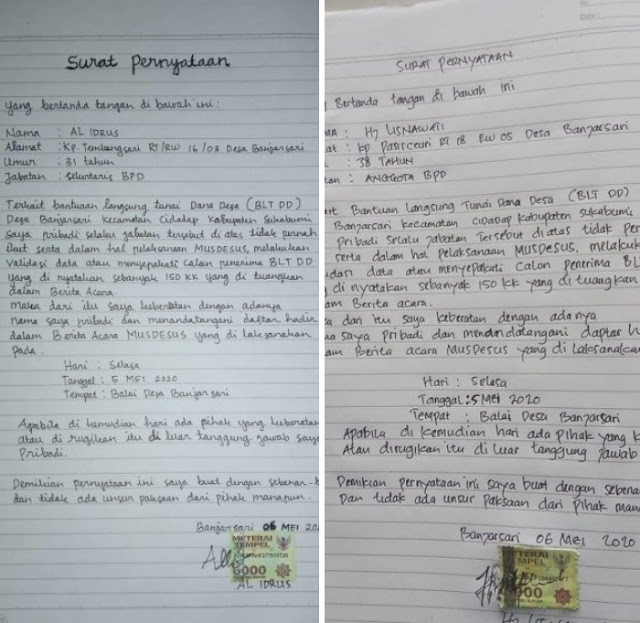 Surat Pernyataan
yang bertanda tangan di bawah ini :
Nama : AL IDRUS
Alamat : Kp. Tembongsari RT/RW 16/08 Desa Banjarsari
Umur : 31 tahun
Jabatan : Sekertaris BPD
Terkait bantuan langsung tunai Dana Desa (BLT DD)
Desa Banjarsari Kecamatan Cidadap Kabupaten Sukabumi
Saya pribadi selalu jabatan tersebut di atas tidak pernah
ikut serta dalam hal pelaksanaan MUSDESUS, melakukan
Validasi data atau menyepakati Calon penerima BLT DD
yang di nyatakan sebanyak 150 KK yang di tuangkan
dalam Berita Acara.
maka dari itu saya keberatan dengan adanya
nama saya pribadi dan menandatangani daptar hadir
dalam Berita Acara MUSDESUS yang di laksanakan
pada.
Hari : Selasa
Tanggal : 5 MEI 2020
Tempat : Balai Desa Banjarsari
Apabila di kemudian hari ada pihak yang keberatan
atau di rugikan itu di luar tanggung jawab saya
Pribadi.
Demikian pernyataan ini saya buat dengan sebenar-
dan tidak ada unsur paksaan dari pihak manapun.
Banjarsari 06 MEI 20
METERAI
TEMPEL
6000
AL IDRUS
SURAT PERNYATAAN
Bertanda tangan di bawah ini
: Hj LISNAWATI
: Kp Pasirceuri RT 18 RW 05 Desa Banjarsari
: 38 TAHUN
: ANGGOTA BPD
Bantuan Langsung Tunai Dana Desa (BLT DD)
Banjarsari kecamatan CIDADAP kabupaten sukabumi
Pribadi Selalu jabatan Tersebut diatas tidak per
serta dalam hal Pelaksanaan MUSDESUS, melakuk
dasi data atau menyepakati Calon penerima BL
di nyatakan sebanyak 150 KK yang di tuangkan
am Berita acara.
a dari itu saya keberatan dengan adanya
a saya Pribadi dan menandatangani daptar h
am Berita acara MUSDESUS yang di laksanakan
Hari : Selasa
Tanggal : 5 MEI 2020
Tempat : Balai Desa Banjarsari
Apabila di kemudian hari ada pihak yang k
Atau dirugikan itu di luar tanggung jawab
Demikian pernyataan ini saya buat dengan sebena
Dan tidak ada unsur paksaan dari pihak man
Banjarsari 06 MEI 2020
TERAI
MPEL
000